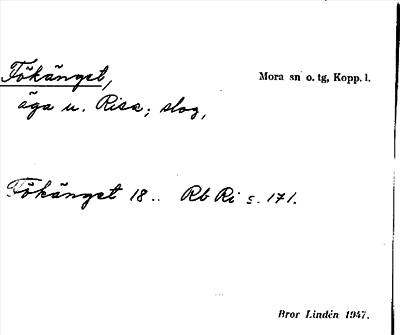 Fökängst, Mora sn o. tg, Kopp. l.
äga u. Risa; slog,
Fökängst 18.. Rb Ri s. 171.
Bror Lindén 1947.